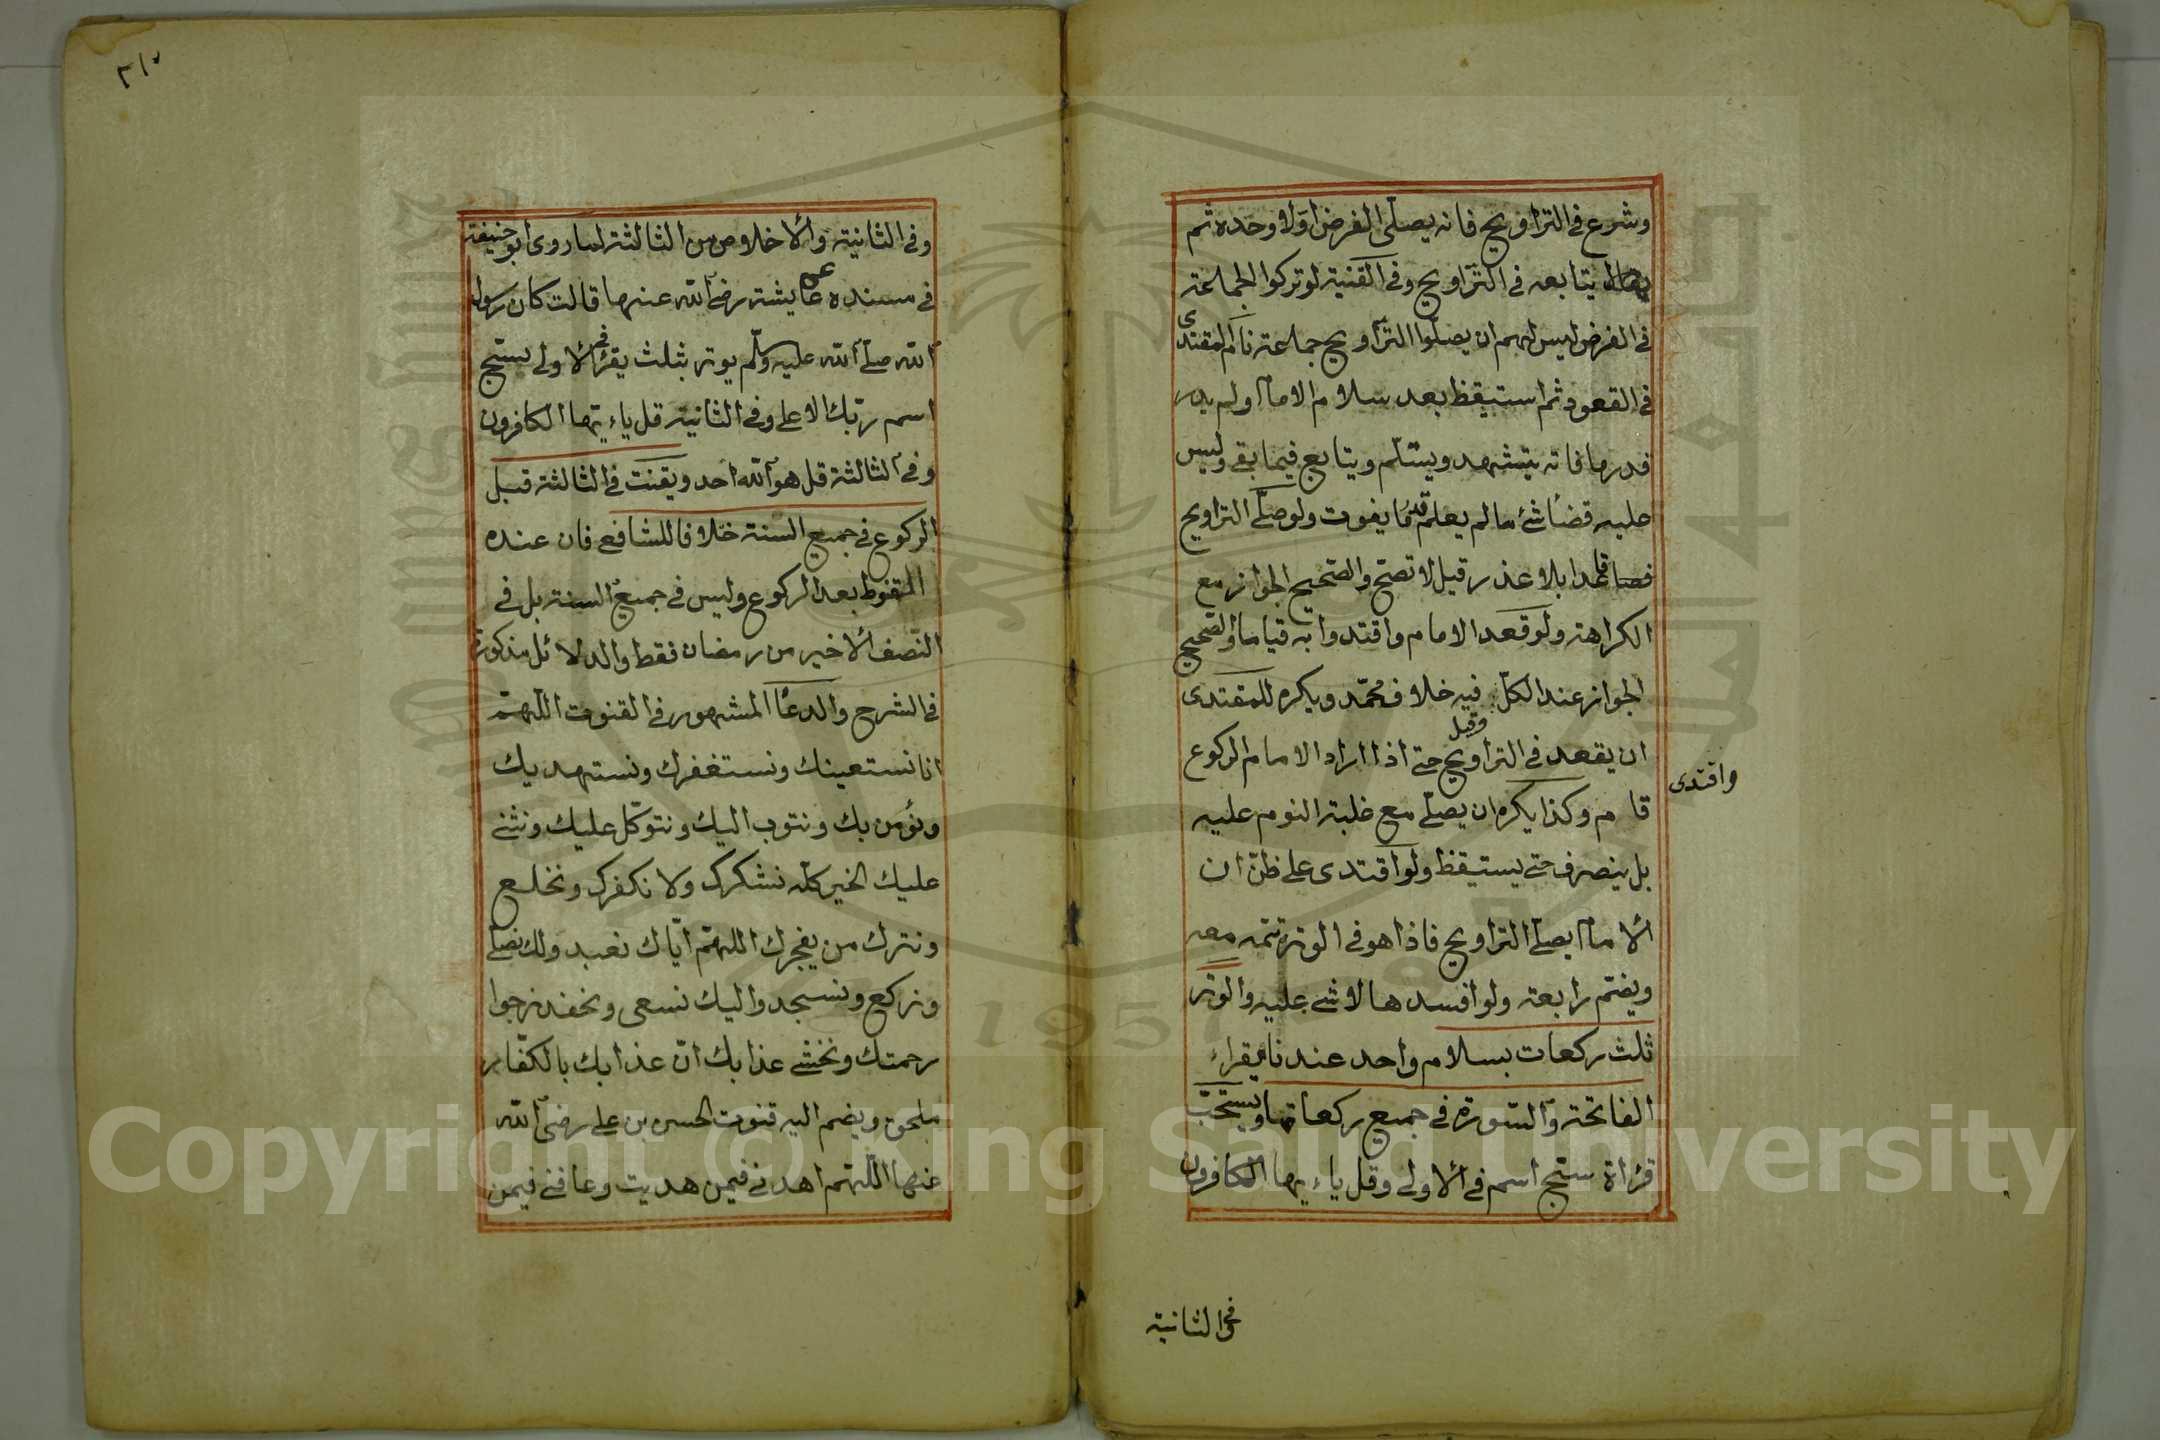 وشرع في التراويح فانه يصلّى الفرض اوّلا وحده ثم
يتابعه في التراويح وفي القنية لو تركوا الجماعة
في الفرض ليس لهم ان يصلّوا التراويح جماعة نام المقتدى
في القعود ثم استيقظ بعد سلام الامام ولم يدر
قدرها فانه يتشهد ويسّلم ويتابع فيما بقى وليس
عليه قضاء شئ ما لم يعلم قدر ما يفوت ولو صلّى التراويح
قاعدا بلا عذر قيل لا تصح والصّحيح الجواز مع
الكراهة ولو قعد الامام واقتدوا به قياما والصّحيح
الجواز عند الكلّ وقيل فيه خلاف محمّد ويكره للمقتدى
ان يقعد في التراويح حتى اذا اراد الامام الركوع
قام وكذا يكره ان يصلّى مع غلبة النوم عليه
بل ينصرف حتى يستيقظ ولو اقتدى على ظنّ ان
الامام يصلّى التراويح فاذا هو في الوتر تتمه معه
ويضمّ رابعة ولو افسدها لا شئ عليه والوتر
ثلث ركعات بسلام واحد عندنا فيقراء
الفاتحة والسّورة في جميع ركعاتها ويستحبّ
قرأة سبّح اسم في الاولى وقل ياءيها الكافرون
واقتدى
في الثانية
٢١٠
وفي الثانية والاخلاص من الثالثة لما روى ابو حنيفة
في مسنده عن عايشة رضى الله عنها قالت كان رسول
الله صلّى الله عليه وسلّم يوتر بثلث يقرأ في الاولى بسبّح
اسم ربّك الاعلى وفي الثانية قل ياءيّها الكافرون
وفي الثالثة قل هو الله احد ويقنت في الثالثة قبل
الركوع في جميع السنة خلافا للشافعى فان عنده
القنوط بعد الركوع وليس في جميع السنة بل في
النّصف الاخير من رمضان فقط والدلائل مذكورة
في الشرح والدعاء المشهور في القنوت اللّهمّ
انا نستعينك ونستغفرك ونستهديك
ونؤمن بك ونتوب اليك ونتوكّل عليك ونثنى
عليك الخير كلّه نشكرك ولا نكفرك ونخلع
ونترك من يفجرك اللهمّ ايّاك نعبد ولك نصلّى
ونركع ونسجد واليك نسعى ونحفد نرجوا
رحمتك ونخشى عذابك انّ عذابك بالكفّار
ملحق ويضم اليه قنوت الحسن بن على رضى الله
عنها اللّهمّ اهدنى فيمن هديت وعافنى فيمن
Copyright © King Saud University
1957